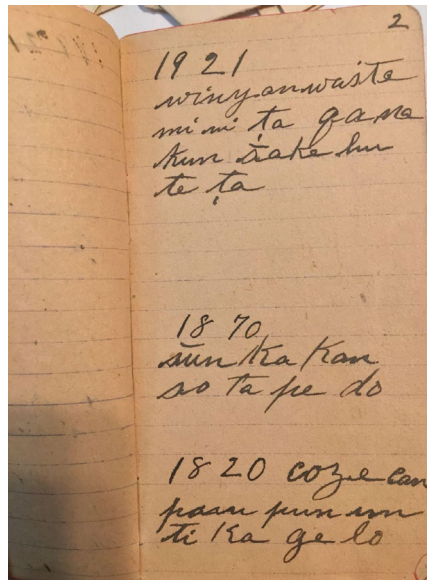 2
1921
winyan waste
mi ni ṭa qa na
kun šake hu
te ṭa
1870
šun ka kan
so ta pe do
1820 coze can
paau pun un
ti ka ge lo